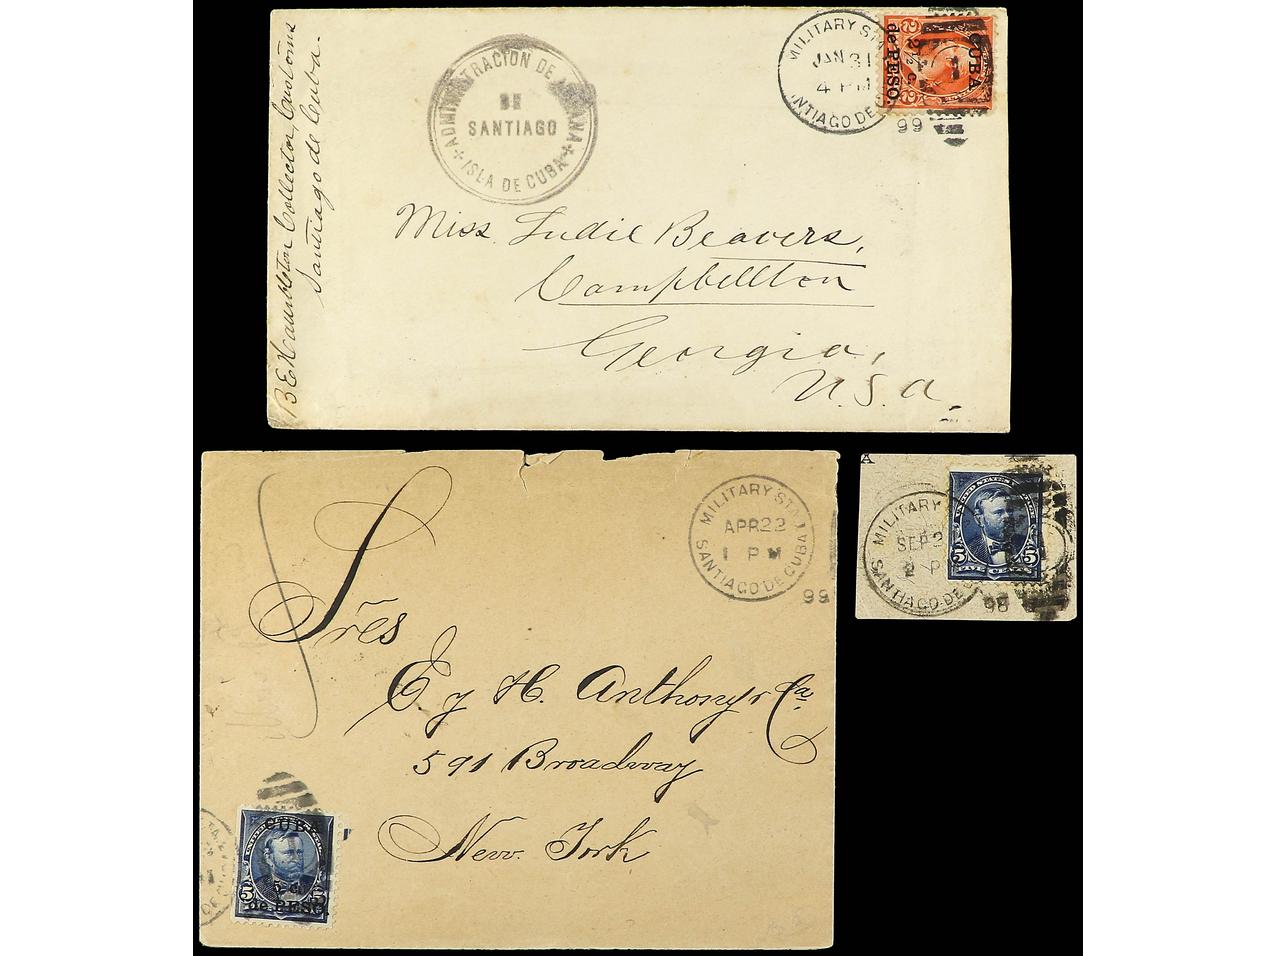 B. E. Hambleton Collector, Customs
Santiago de Cuba.
ADMINISTRACION DE ADUANA
DE
SANTIAGO
+ ISLA DE CUBA +
MILITARY STA
JAN 31
4 PM
SANTIAGO DE
99
CUBA
2½ c.
de PESO.
2 2
Miss. Ludie Beavers,
Campbellton
Georgia,
U.S.A.
MILITARY STA. 1
APR 22
1 PM
SANTIAGO DE CUBA
99
Srēs
E. y H. Anthony y Ca.
591 Broadway
New. York
CUBA
5 c.
de PESO.
5 5
A
MILITARY
SEP 2
2 P
SANTIAGO DE
98
UNITED STATES
5 5